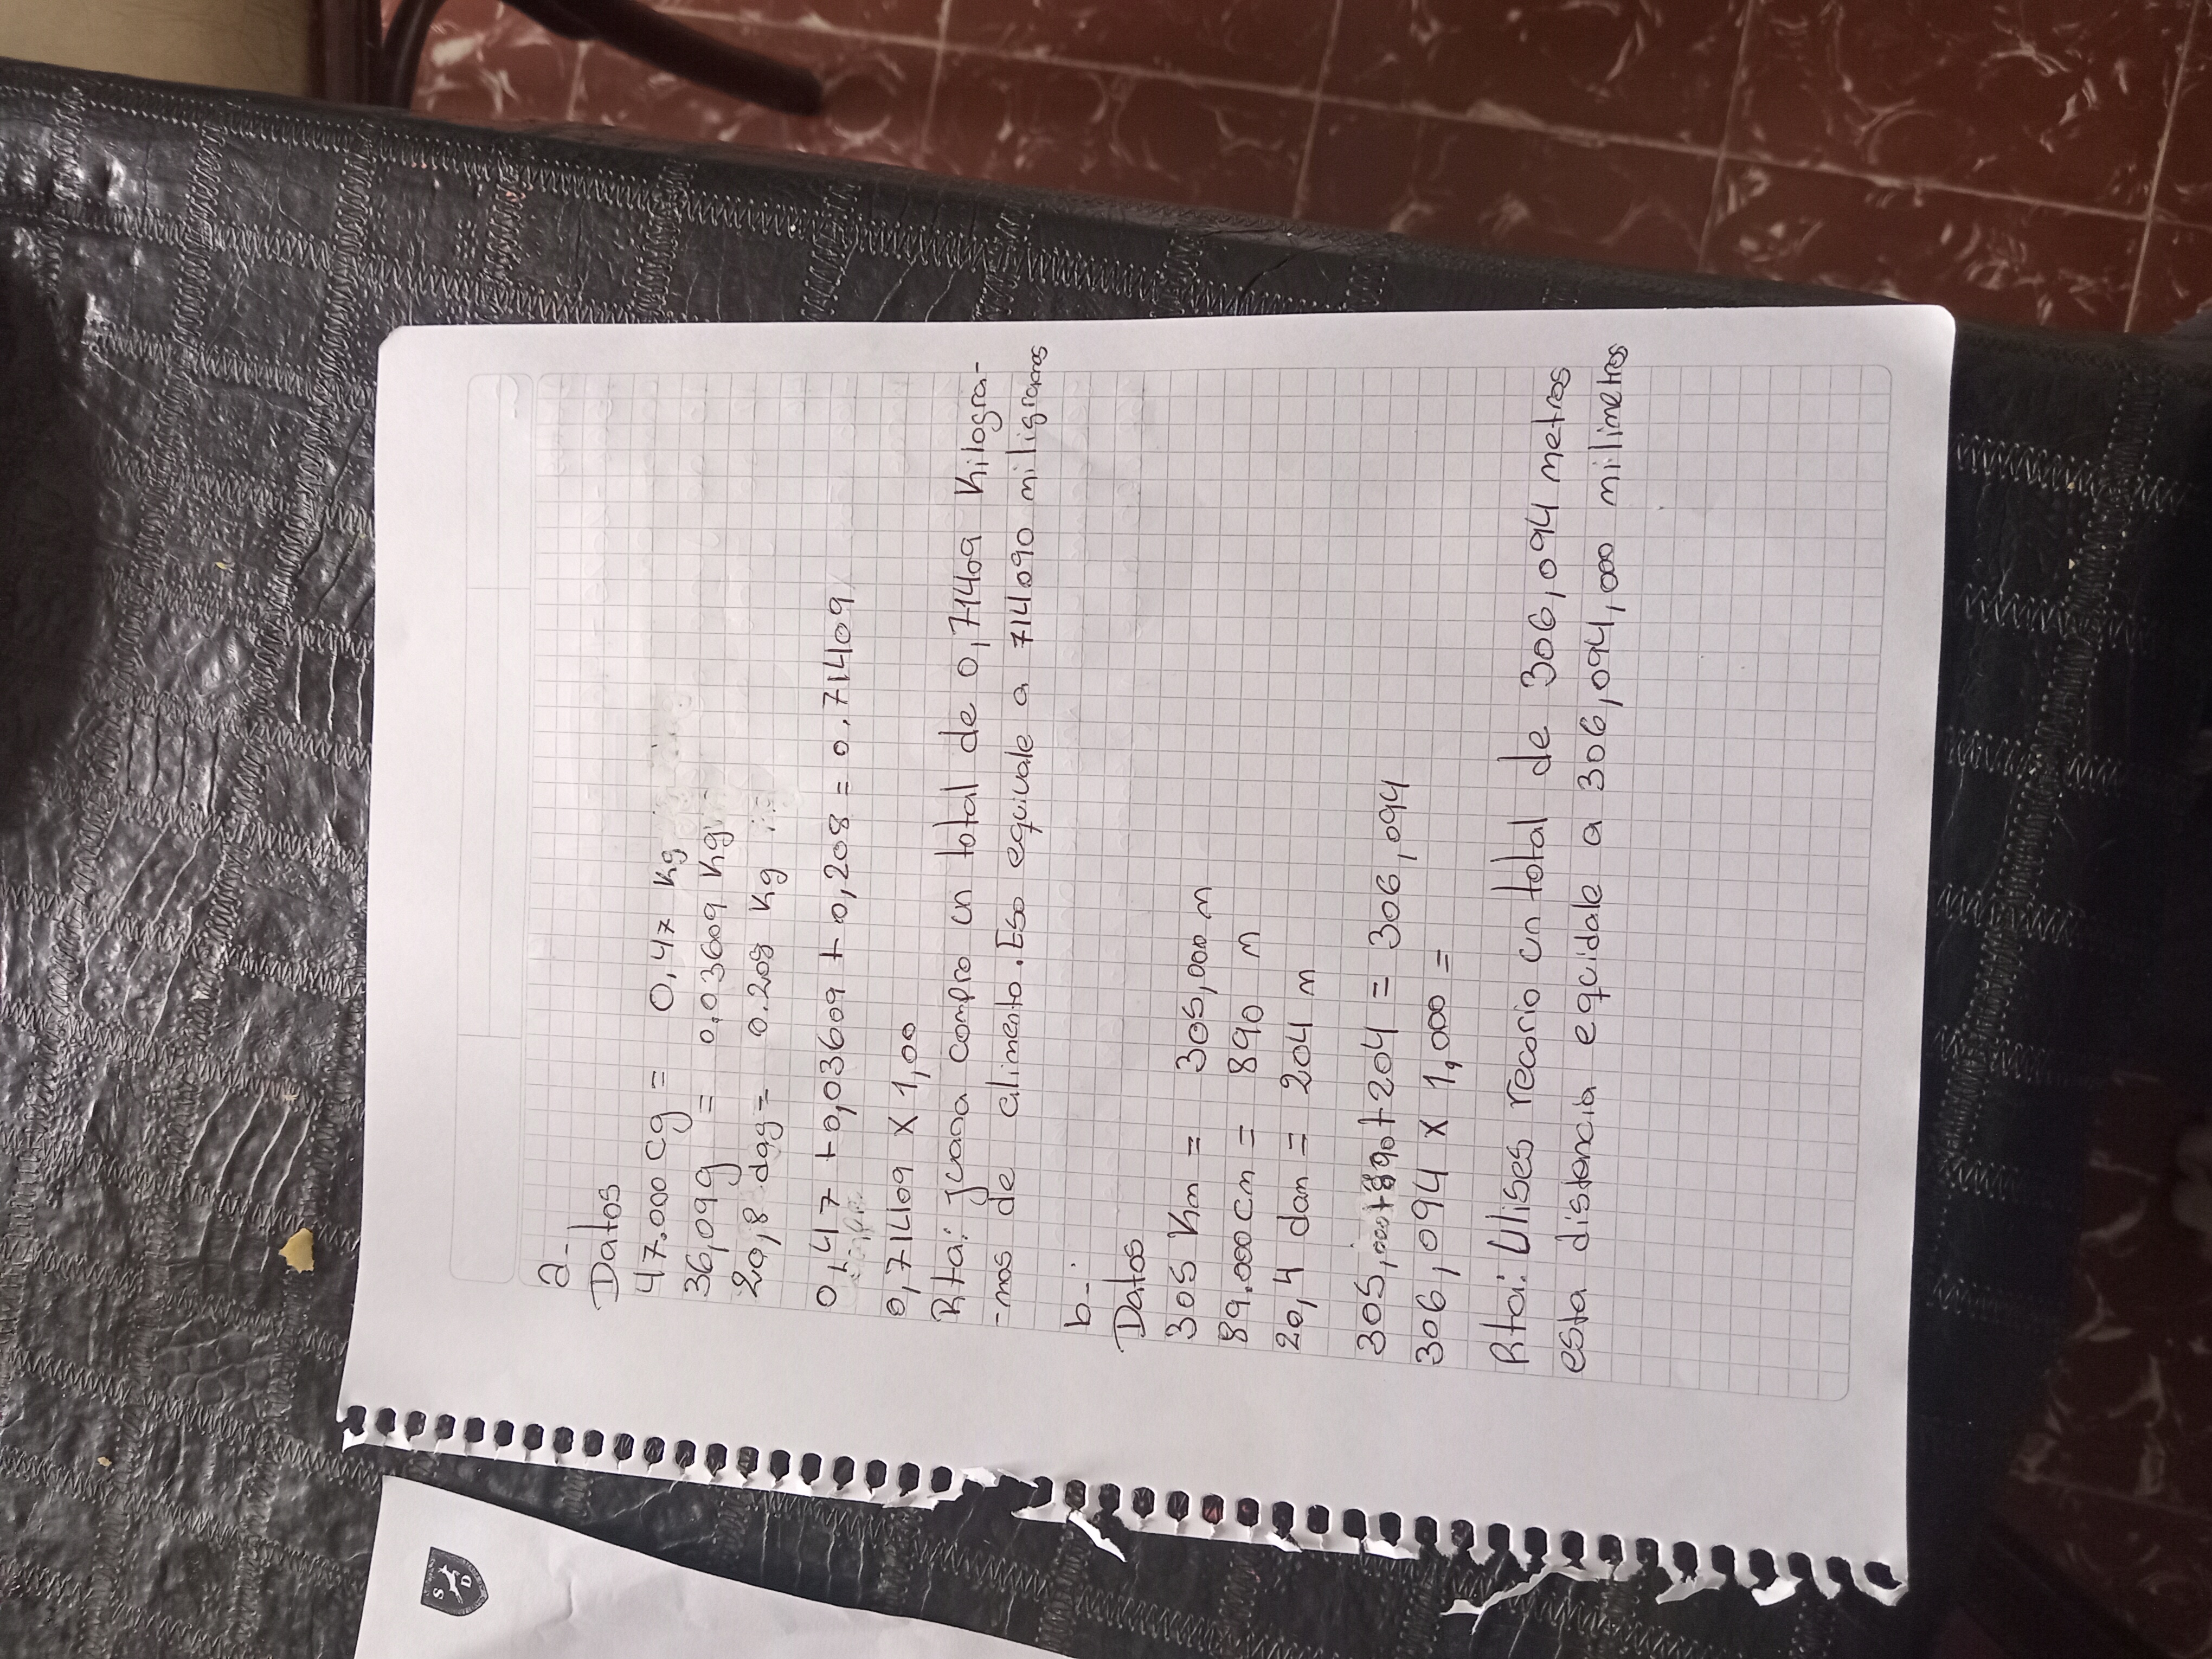 a-
Datos
47.000 cg = 0,47 Kg
36,09g = 0.03609 Kg
20,8 dag = 0.208 Kg
0,47 + 0,03609 + 0,208 = 0,71409
0,71409 x 1,00
Rta: juana compro un total de 0,71409 Kilogra-
-mos de alimento. Eso equivale a 714090 miligramos
b-.
Datos
305 Km = 305,000 m
89.000cm = 890 m
20,4 dam = 204 m
305,000+890+204 = 306,094
306,094 x 1,000 =
Rta: Ulises recorio un total de 306,094 metros
esta distancia equidale a 306,094,000 milimetros
S
D